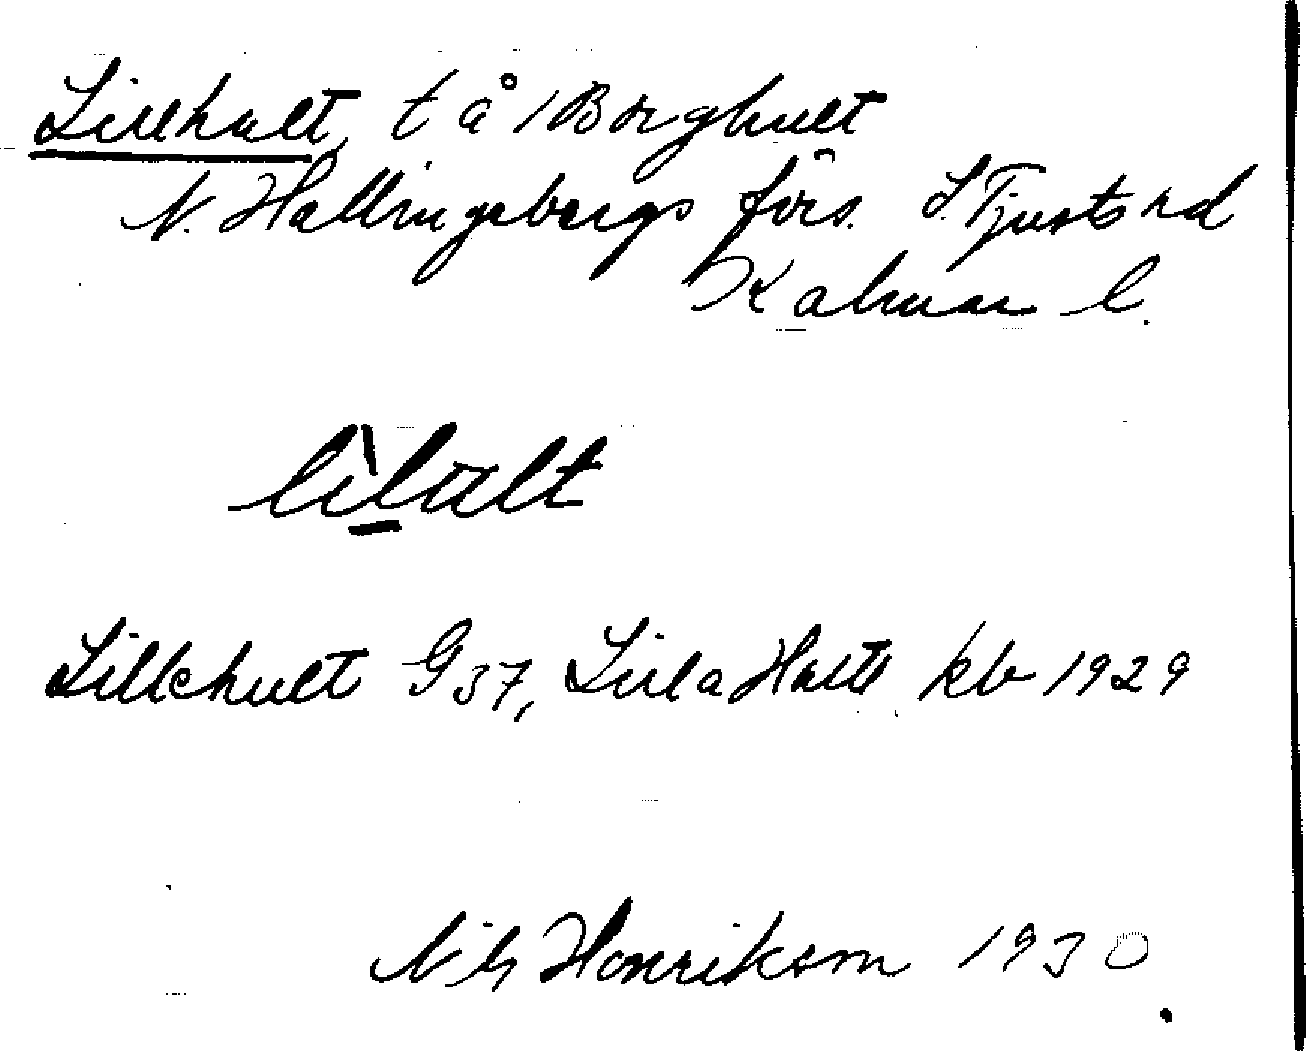 Lillhult, t å 1 Borghult
N. Hallingebergs förs. S. Tjusts hd
Kalmar l.
lìlult
Lillehult G 37, Lilla Hult kb 1929
Nils Henrikson 1930